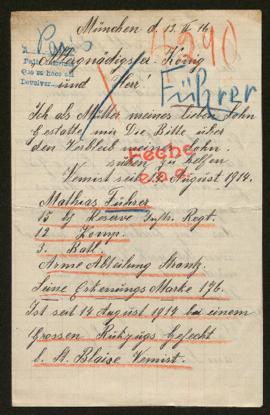 München d 13. II. 16
Paris
5290
Allergnädigster König
und Herr!
Führer
Ich als Mutter meines lieben Sohn
Erstatte mir Die Bitte über
den Verbleib meines Sohn.
suchen zu helfen
Fecha
Vermist seit 14. August 1914.
Mathias Führer
15 Reserve Inftr. Regt.
12 Komp.
3. Batl.
Arme Abteilung
Seine Erkennungs Marke 196.
Ist seit 14 August 1914 bei einem
Grossen Rückzugs Gefecht
b. St. Blaise Vermist.